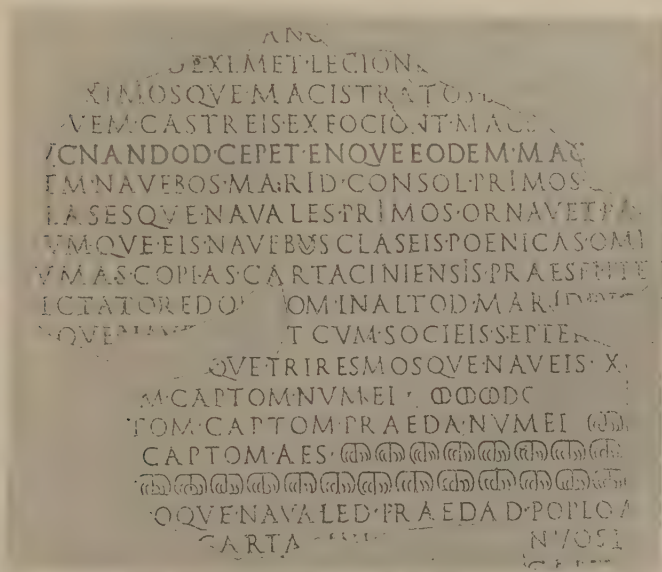 ANO
D·EXIMET·LECION
XIMOSQVE·MACISTRATO
VEM·CASTREIS·EXFOCIONT·MAC
CNANDOD·CEPET·ENQVE·EODEM·MAC
EM·NAVEBOS·MARID·CONSOL·PRIMOS
LASESQVE·NAVALES·PRIMOS·ORNAVET·PA
VMQVE·EIS·NAVEBVS·CLASEIS·POENICAS·OMN
VMAS·COPIAS·CARTACINIENSIS·PRAESENTE
ICTATORED·OM·IN·ALTOD·MARID
QVE T·CVM·SOCIEIS·SEPTER
QVE·TRIRESMOSQVE·NAVEIS·X
M·CAPTOM·NVMEI·ↀↀↀDC
TOM·CAPTOM·PRAEDA·NVMEI·ↈ
CAPTOM·AES·ↈↈↈↈↈↈↈↈↈ
ↈↈↈↈↈↈↈↈↈↈↈↈↈ
OQVE·NAVALED·PRAEDAD·POPLO
CARTA NIOSI